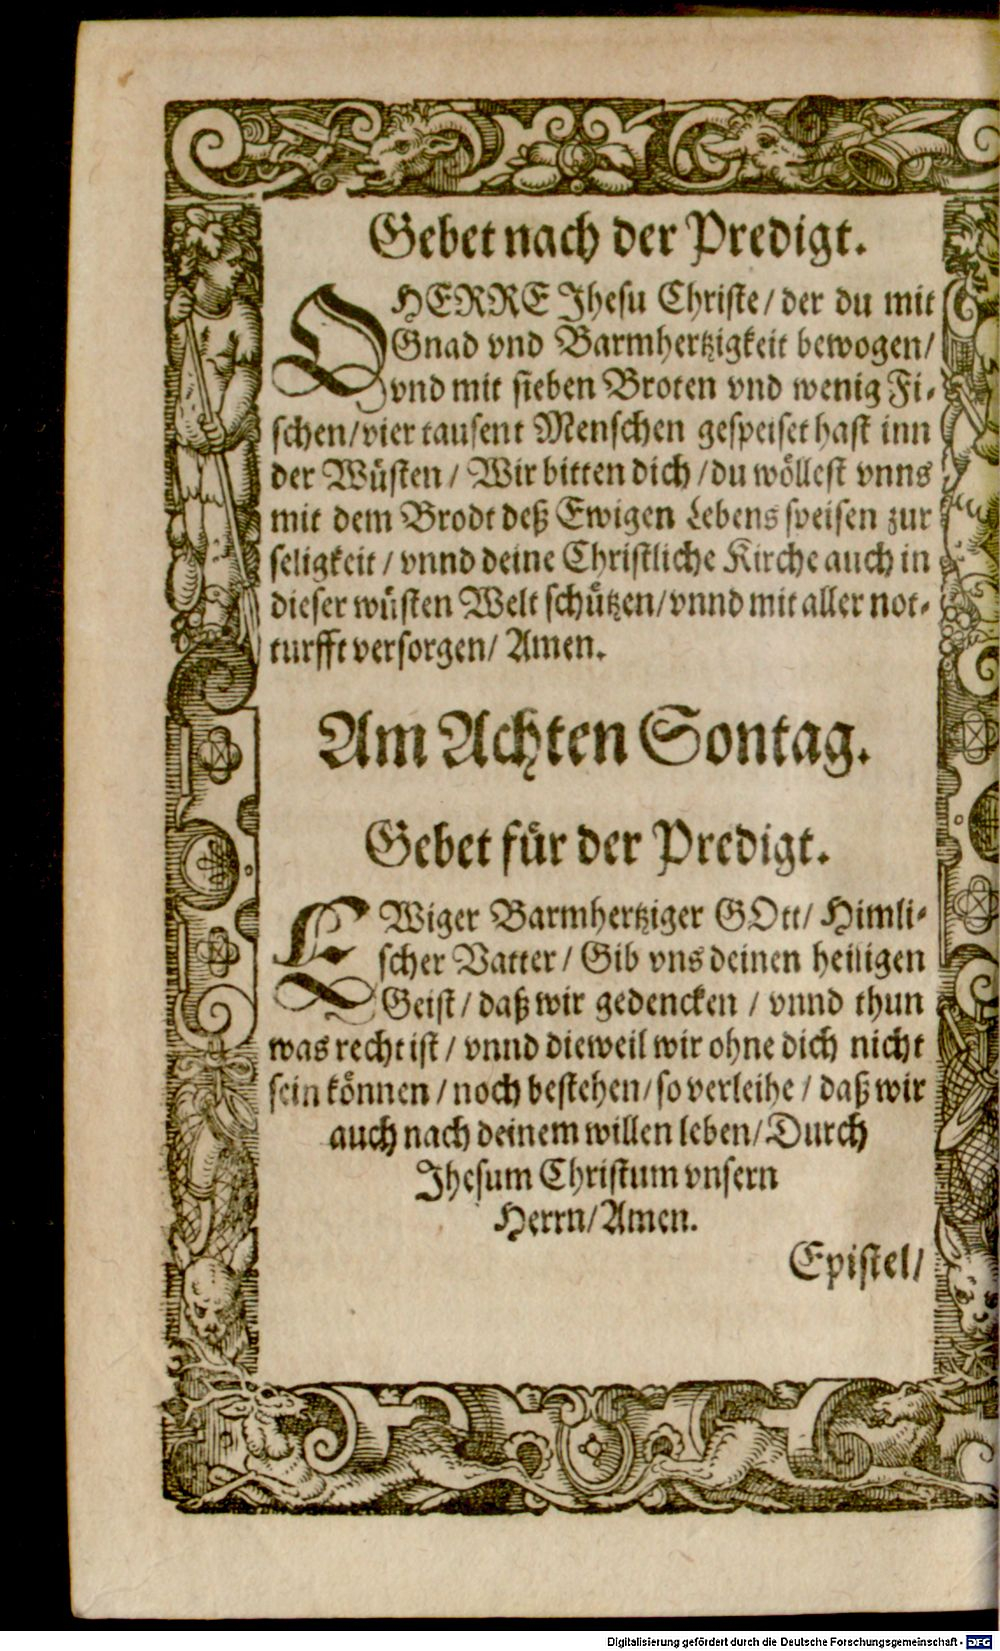 Gebet nach der Predigt.
O HERRE Jhesu Christe/ der du mit
Gnad vnd Barmhertzigkeit bewogen/
vnd mit sieben Broten vnd wenig Fi-
schen/ vier tausent Menschen gespeiset hast inn
der Wüsten/ Wir bitten dich/ du wöllest vnns
mit dem Brodt deß Ewigen Lebens speisen zur
seligkeit/ vnnd deine Christliche Kirche auch in
dieser wüsten Welt schützen/ vnnd mit aller not-
turfft versorgen/ Amen.
Am Achten Sontag.
Gebet für der Predigt.
EWiger Barmhertziger GOtt/ Himli-
scher Vatter/ Gib vns deinen heiligen
Geist/ daß wir gedencken/ vnnd thun
was recht ist/ vnnd dieweil wir ohne dich nicht
sein können/ noch bestehen/ so verleihe/ daß wir
auch nach deinem willen leben/ Durch
Jhesum Christum vnsern
Herrn/ Amen.
Epistel/
Digitalisierung gefördert durch die Deutsche Forschungsgemeinschaft - DFG